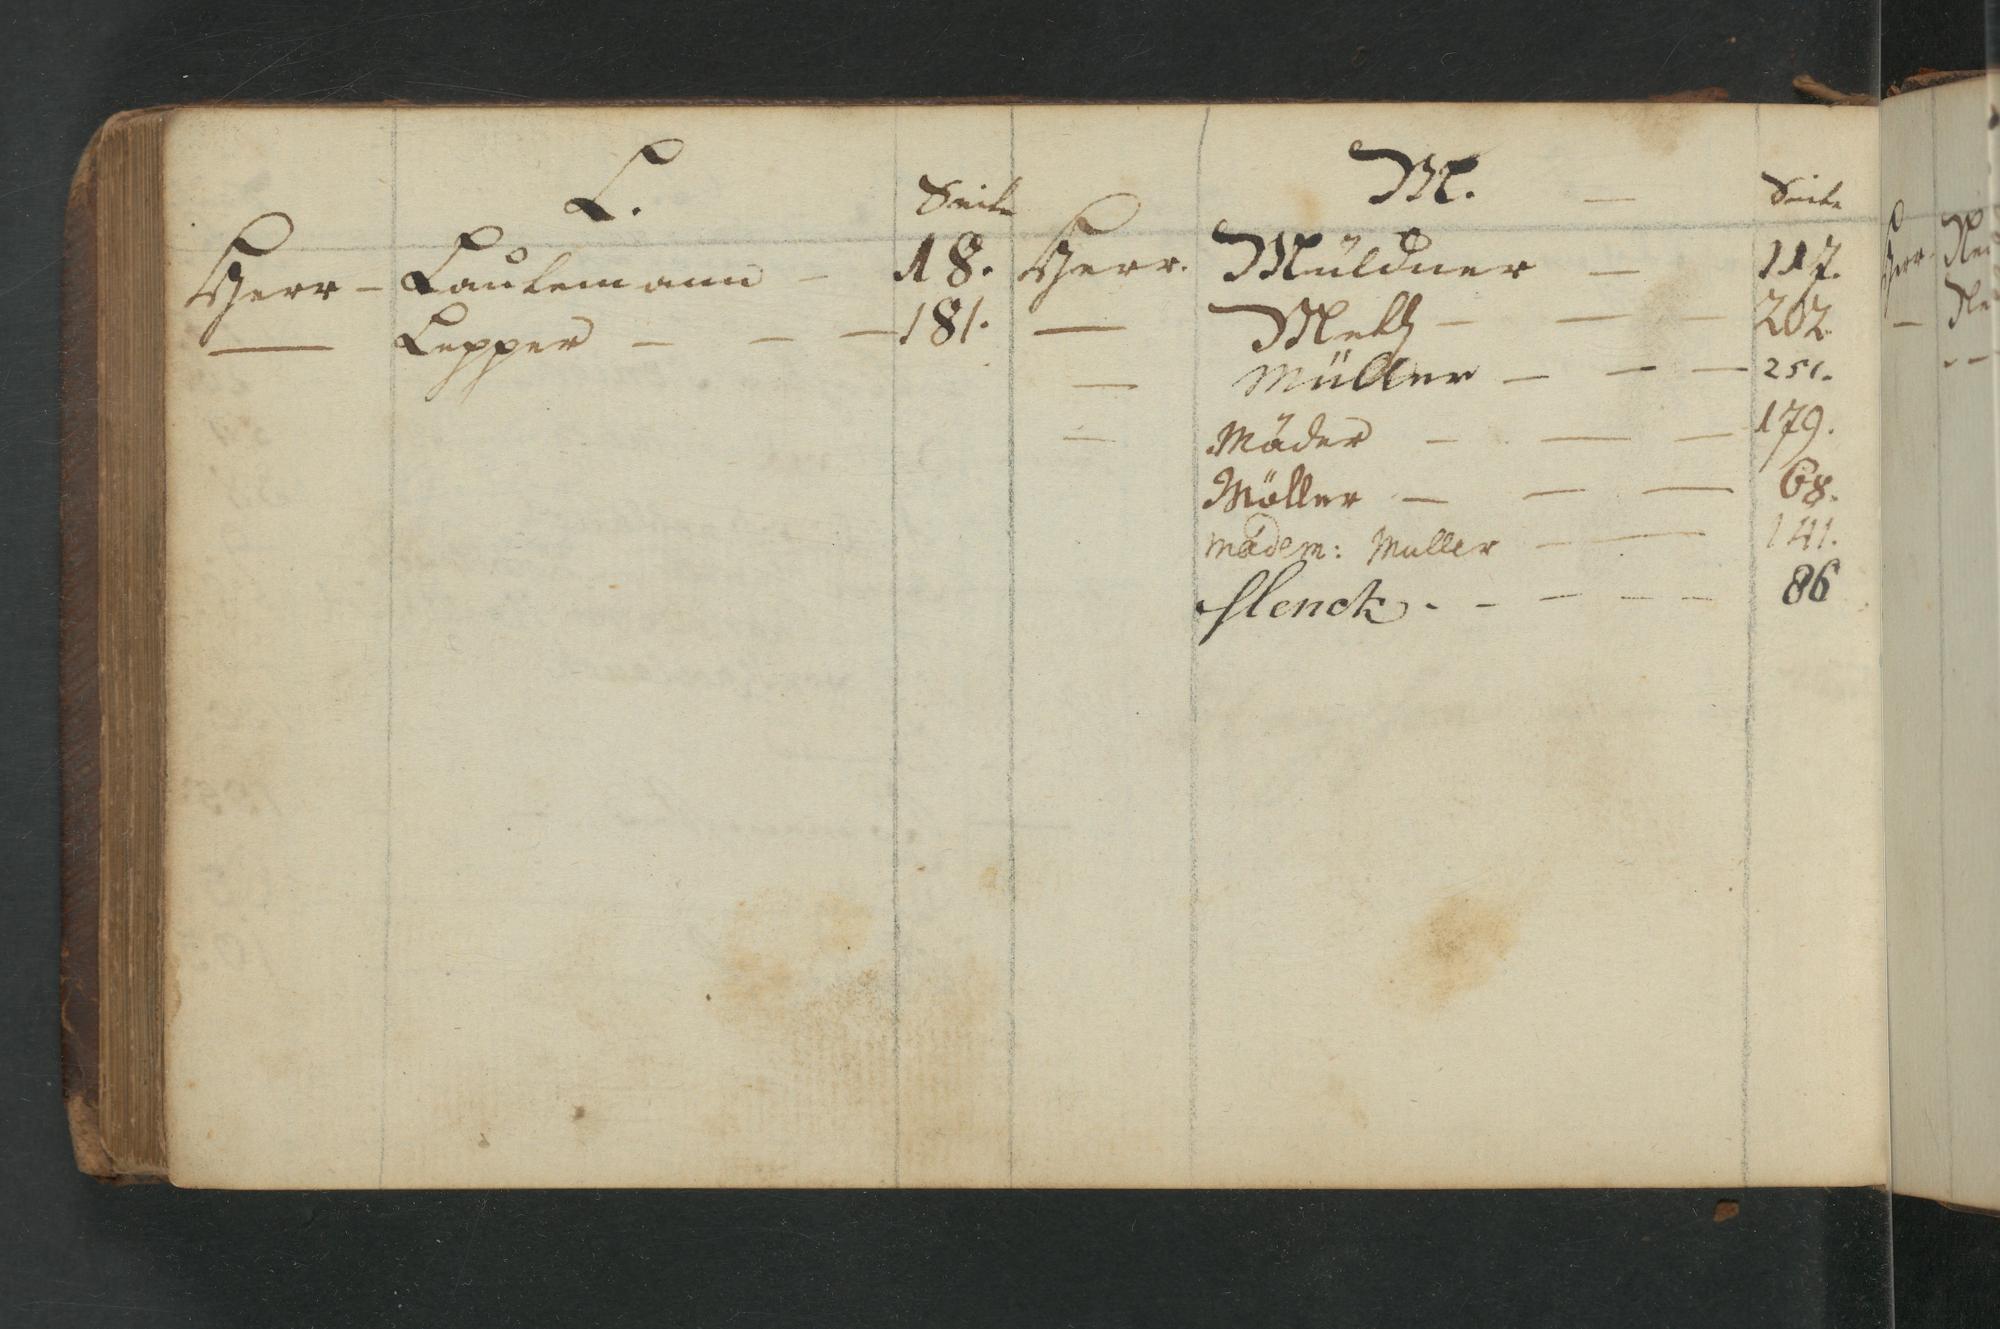 L.
Seite
Herr – Laukemann – 18.
— Lepper – – – 181.
M. –
Seite
Herr. Müldner – 117.
— Metz – – – 202.
— Müller – – – 251.
— Mäder – – – 179.
Möller – – – 68.
Madem: Muller – – 141.
Menck. – – – – – 86
Herr